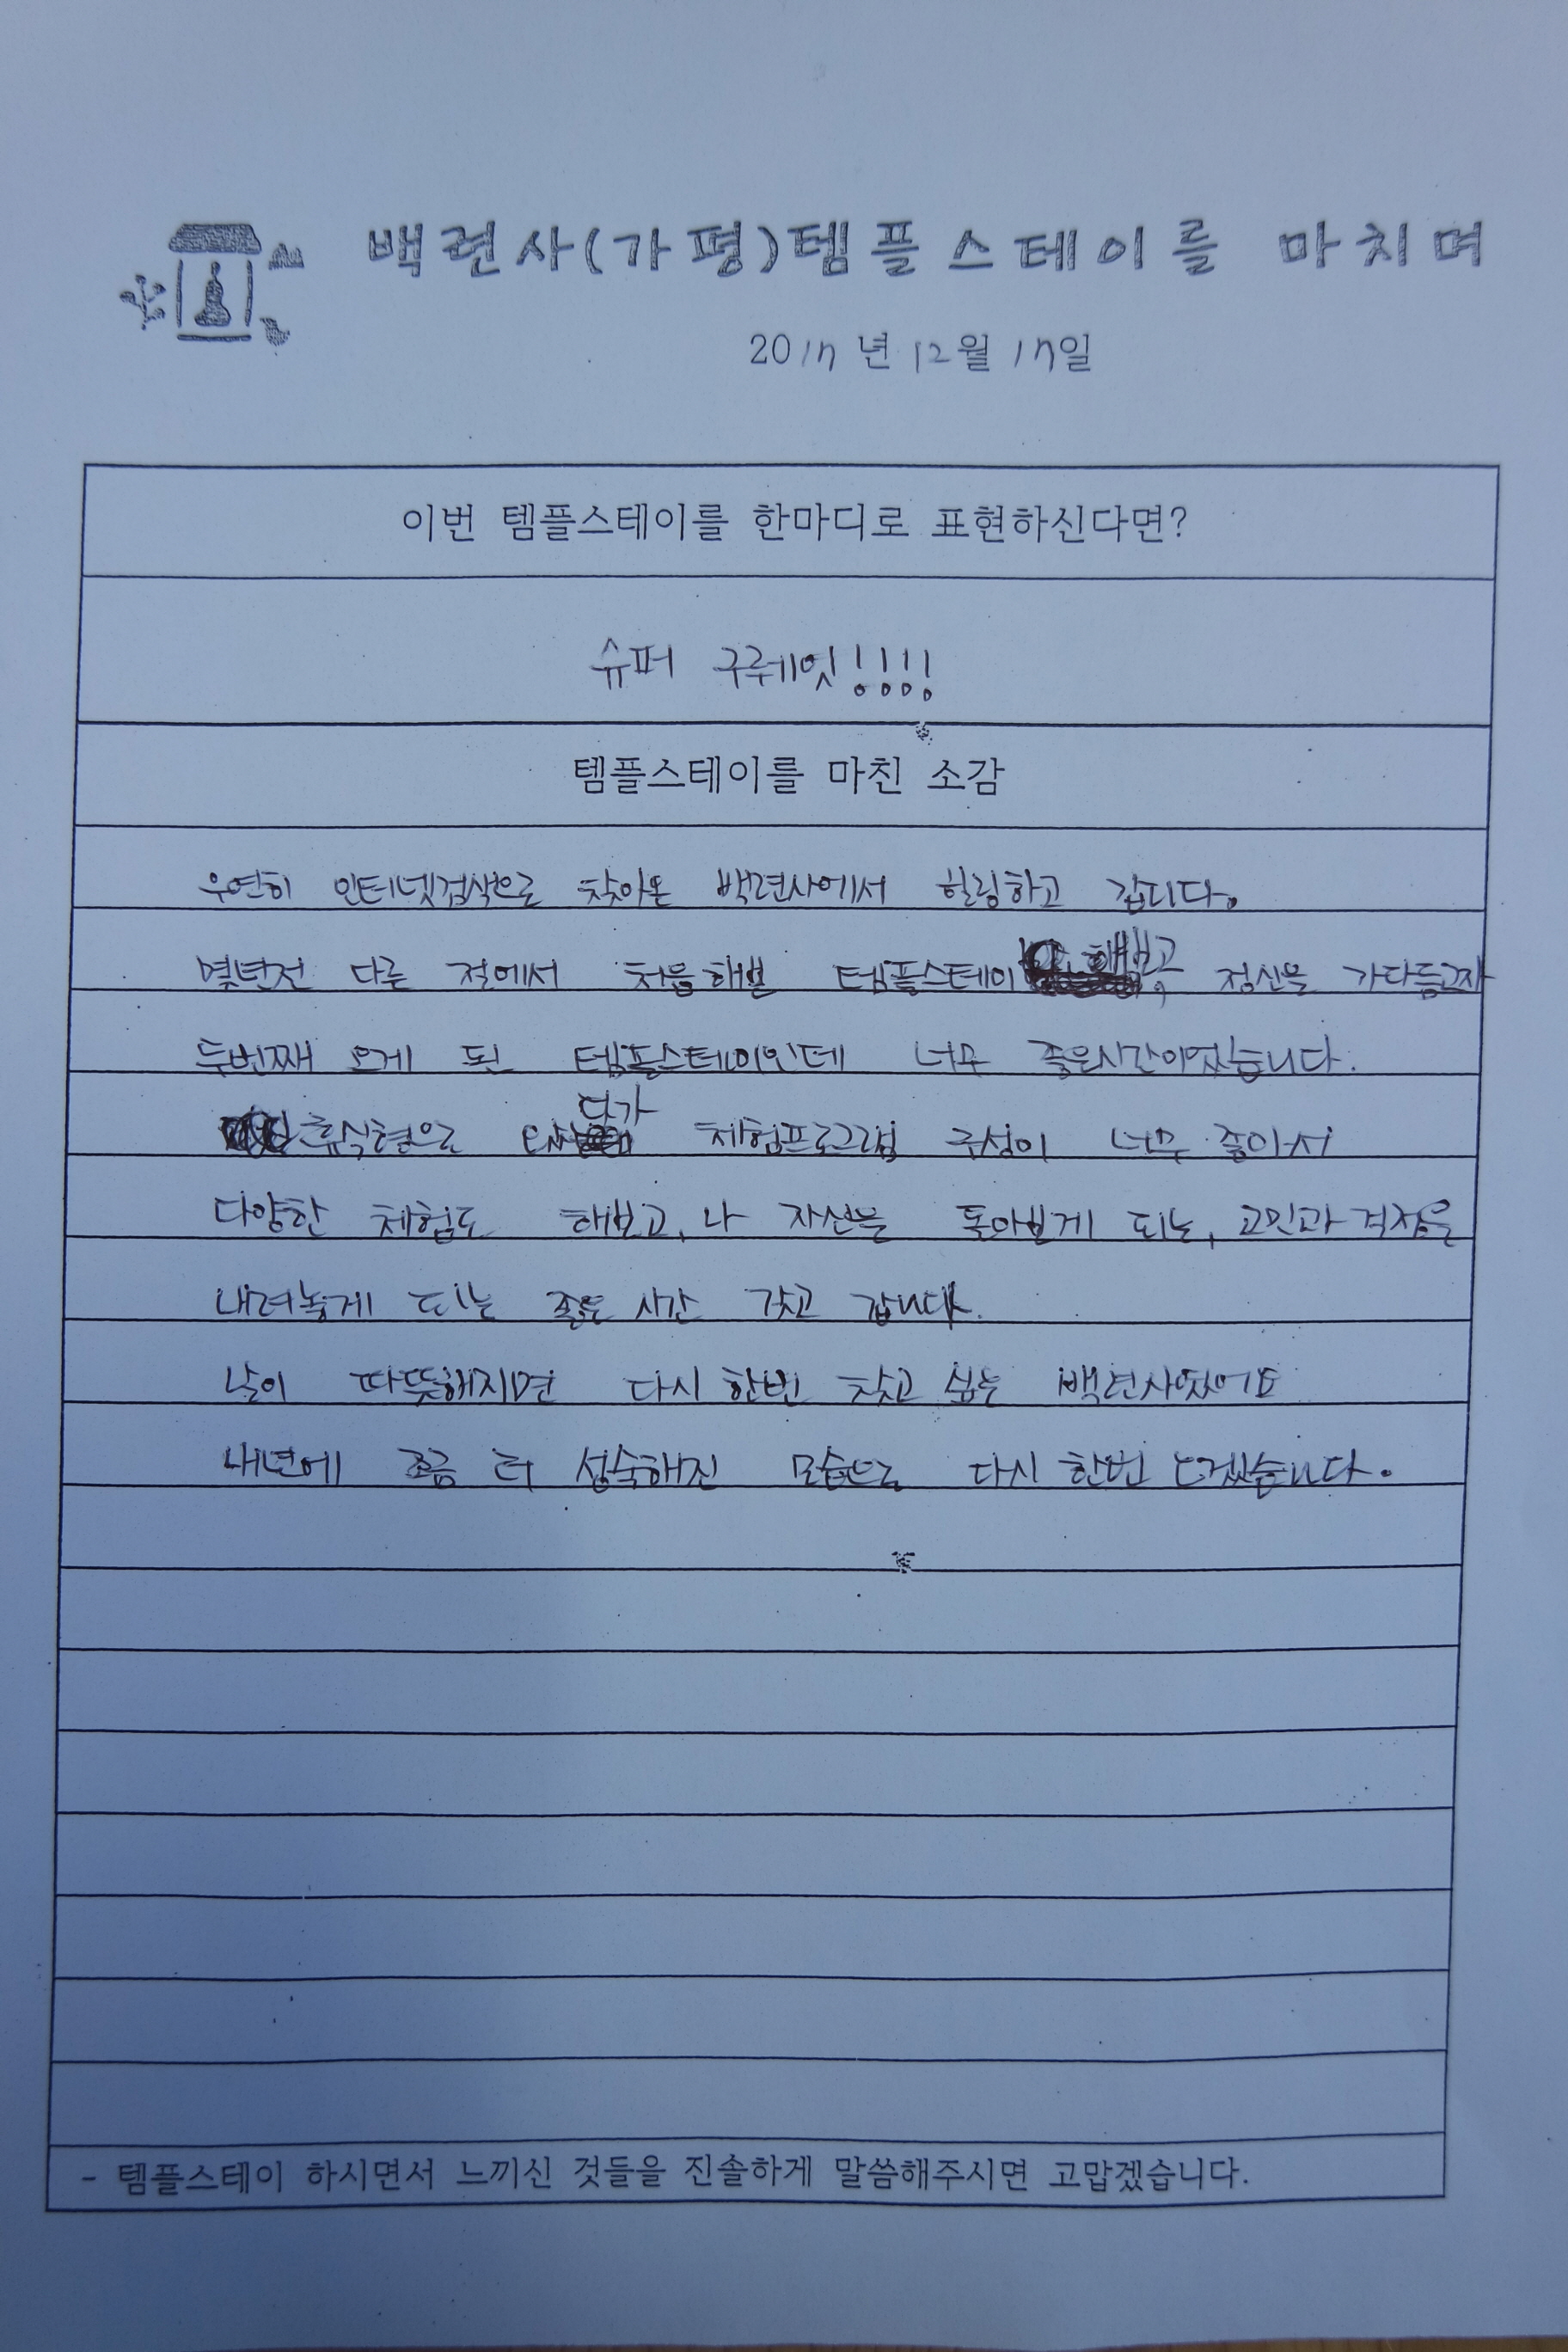 백련사(가평)템플스테이를 마치며
2017년 12월 17일
이번 템플스테이를 한마디로 표현하신다면?
슈퍼 구뤠잇!!!!
템플스테이를 마친 소감
우연히 인터넷검색으로 찾아온 백련사에서 힐링하고 갑니다.
몇년전 다른 절에서 처음해본 템플스테이 해보고, 정신을 가다듬고자
두번째 오게 된 템플스테이인데 너무 좋은시간이었습니다.
휴식형으로 체험프로그램 구성이 너무 좋아서
다양한 체험도 해보고, 나 자신을 돌아보게 되는, 고민과 걱정을
내려놓게 되는 좋은 시간 갖고 갑니다.
날이 따뜻해지면 다시 한번 찾고 싶은 백련사였어요
내년에 조금 더 성숙해진 모습으로 다시 한번 오겠습니다.
- 템플스테이 하시면서 느끼신 것들을 진솔하게 말씀해주시면 고맙겠습니다.